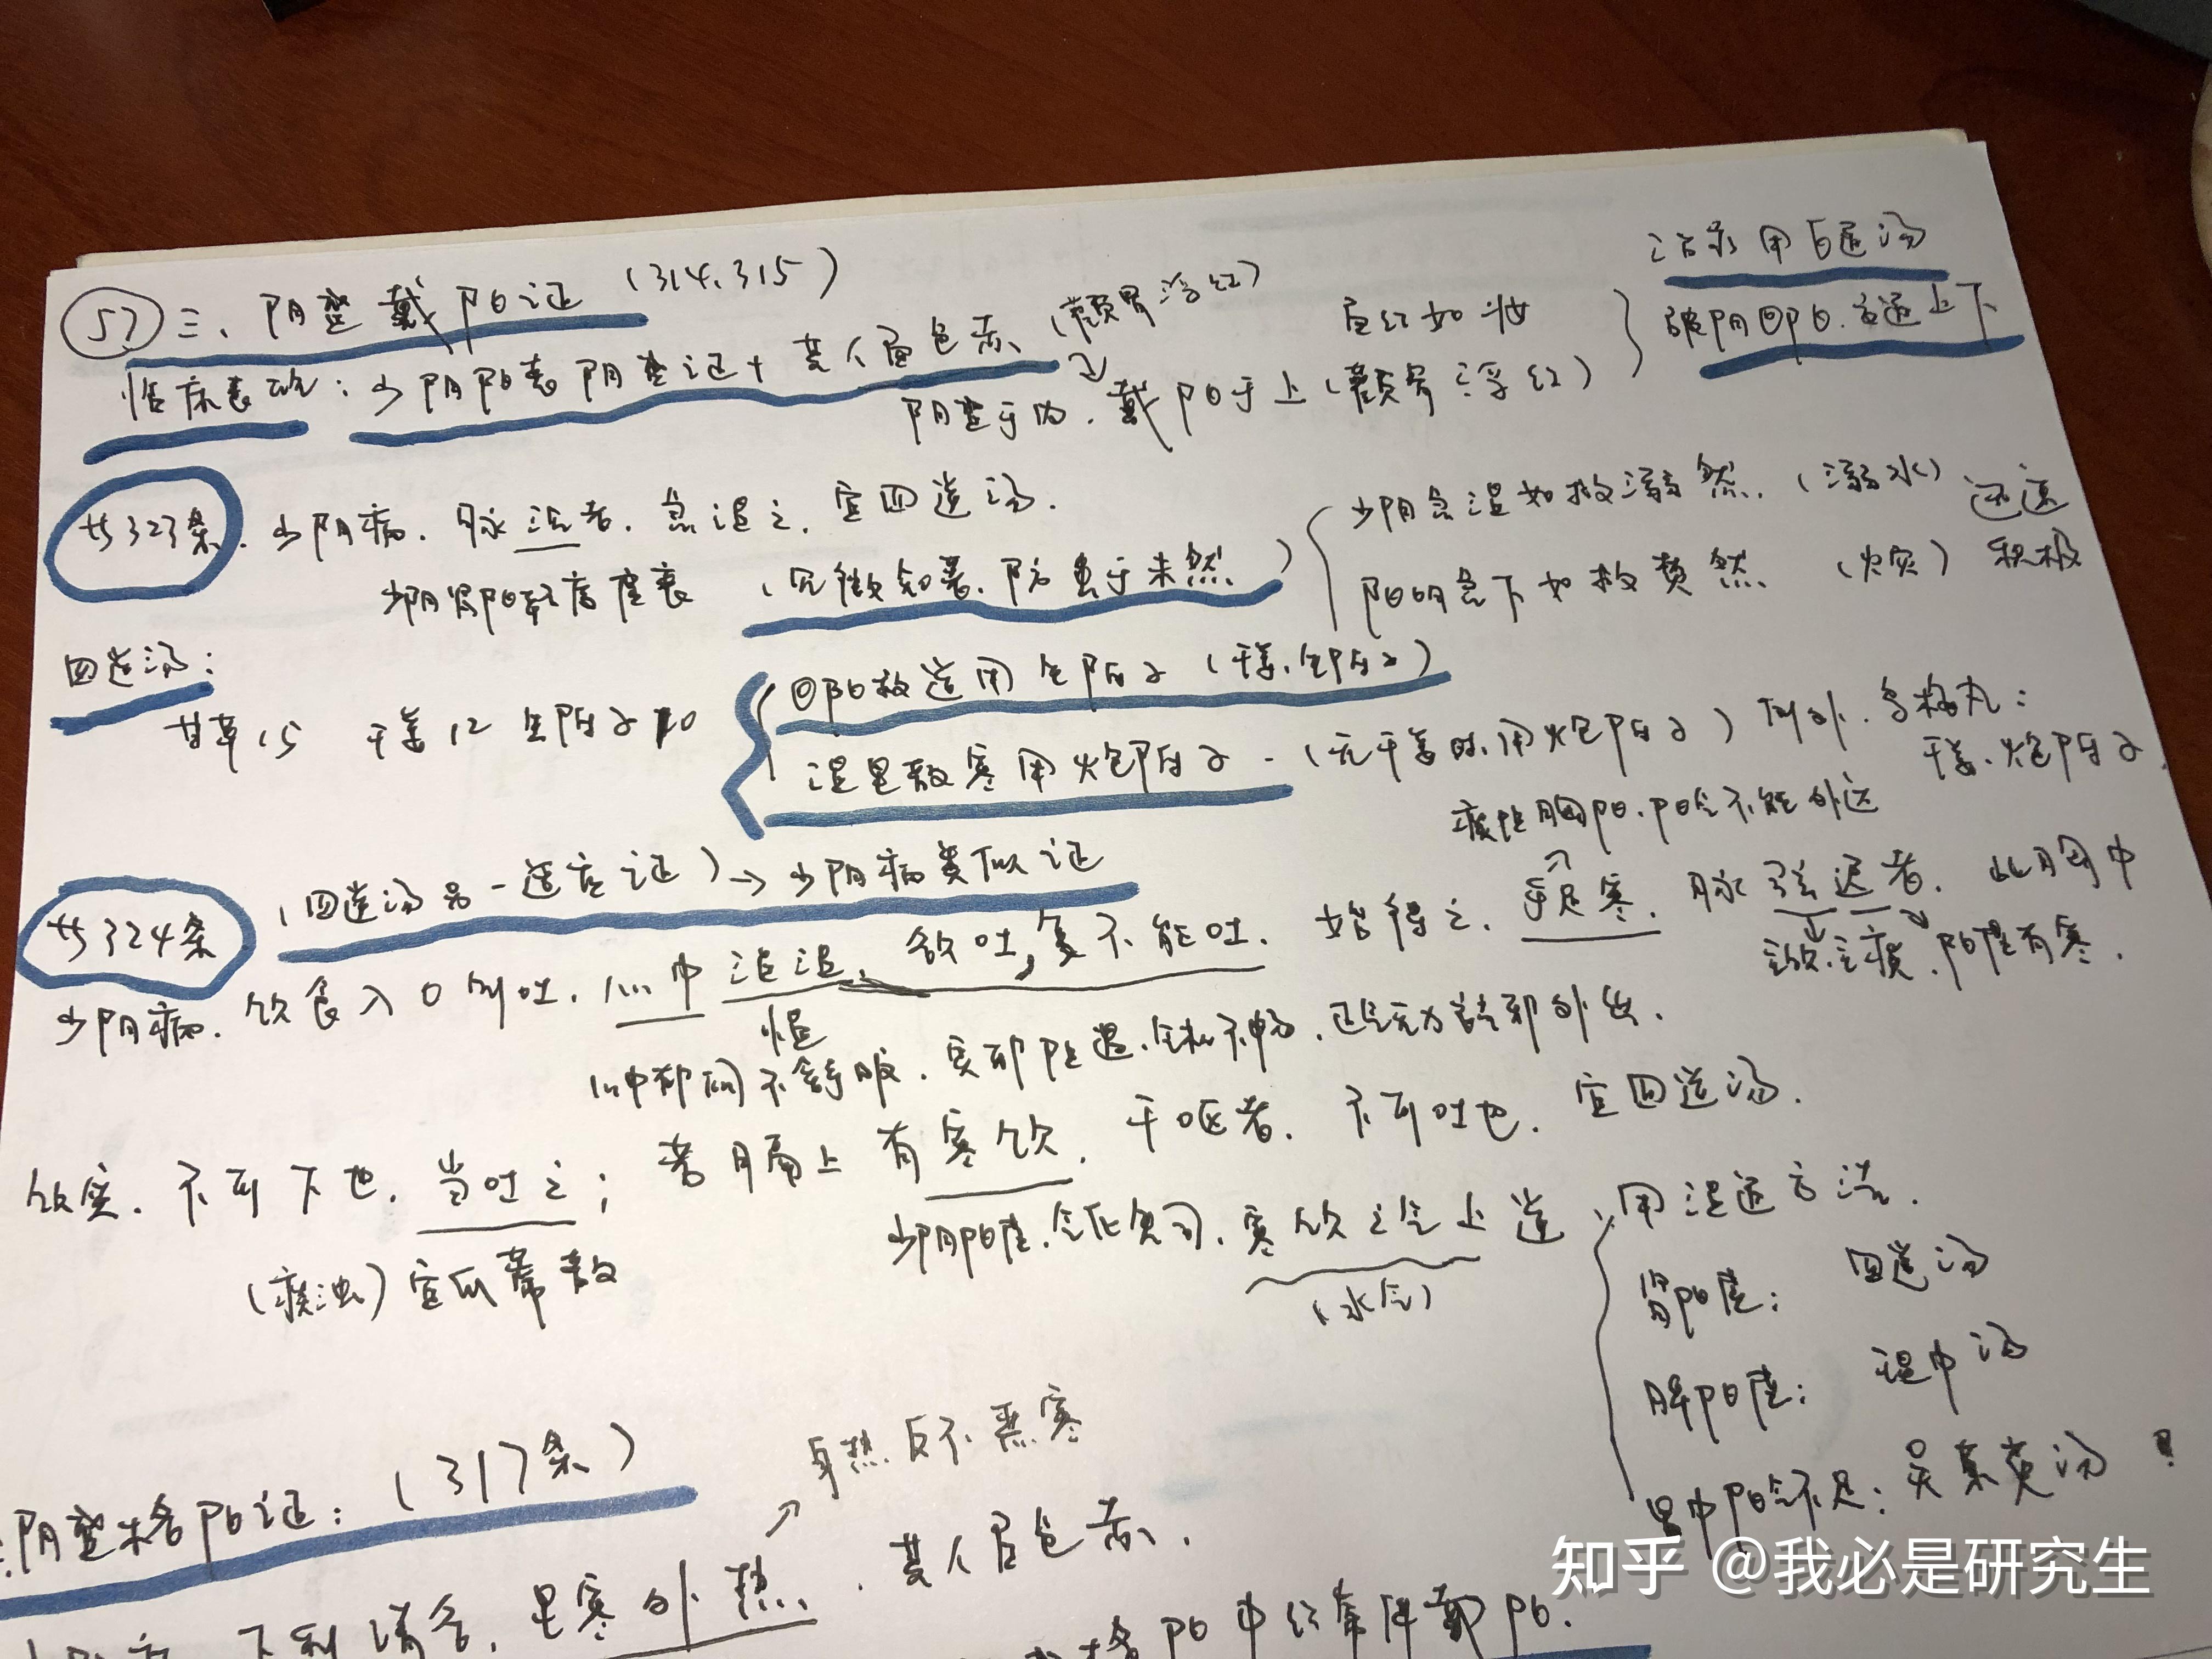 57 三、阴盛戴阳证 (314、315)
治疗用白通汤
临床表现：少阴阳衰阴盛证+其人面色赤 (颧骨浮红)
面红如妆
破阴回阳、宣通上下
阴盛于内、戴阳于上 (颧骨浮红)
共323条、少阴病、脉沉者、急温之、宜四逆汤.
少阴急温如救溺然、(溺水) 迅速
少阴肾阳轻度虚衰 (见微知著、防患于未然)
阳明急下如救焚然 (火灾) 积极
四逆汤：
甘草15 干姜12 生附子10
回阳救逆用生附子 (干姜、生附子)
温里散寒用炮附子 (无干姜时、用炮附子) 例外、乌梅丸：
干姜、炮附子
共324条 (四逆汤另一适应证) → 少阴病类似证
痰阻胸阳、阳气不能外达
少阴病、饮食入口则吐、心中温温、欲吐,复不能吐、始得之、手足寒、脉弦迟者、此胸中
愠
主饮、主痰、阳虚有寒、
心中郁闷不舒服、实邪阻遏、气机不畅、正气无力驱邪外出、
饮实、不可下也、当吐之；若膈上有寒饮、干呕者、不可吐也、宜四逆汤.
(痰浊) 宜瓜蒂散
少阴阳虚、气化失司、寒饮之气上逆
(水气)
用温通方法.
肾阳虚： 四逆汤
脾阳虚： 理中汤
胃中阳气不足：吴茱萸汤
阴盛格阳证：(317条)
身热反不恶寒
下利清谷、里寒外热、其人面色赤、
格阳中经常伴戴阳.
知乎 @我必是研究生